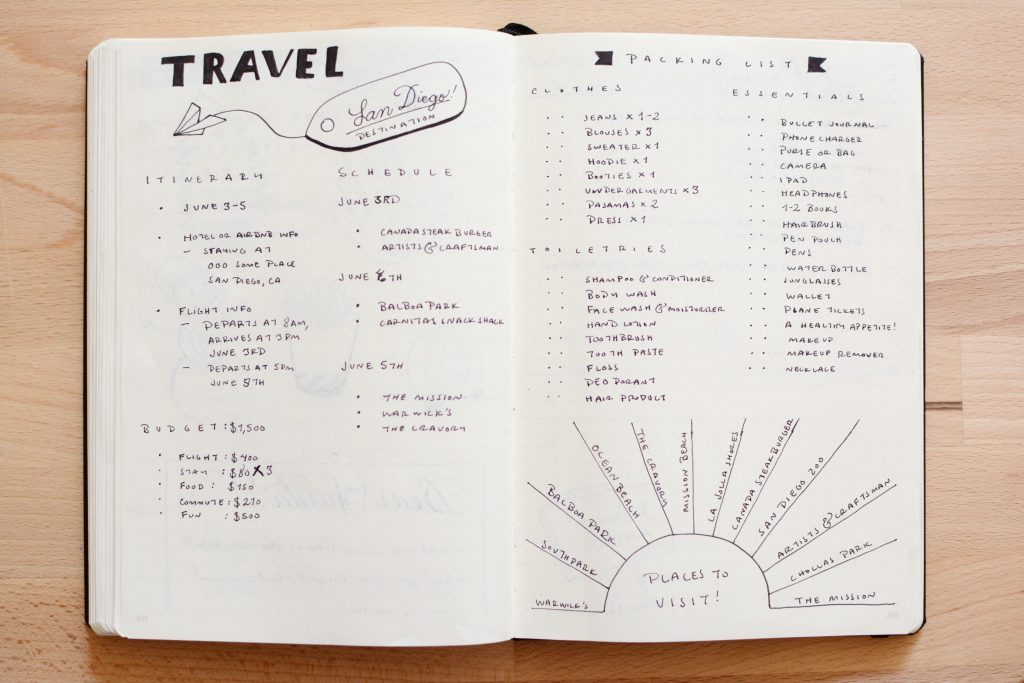 TRAVEL
San Diego!
DESTINATION
ITINERARY
• JUNE 3-5
• HOTEL OR AIRBNB INFO
– STAYING AT
000 SOME PLACE
SAN DIEGO, CA
• FLIGHT INFO
– DEPARTS AT 8AM,
ARRIVES AT 3PM
JUNE 3RD
– DEPARTS AT 5PM
JUNE 5TH
BUDGET: $1,500
• FLIGHT: $400
• STAY: $80 X 3
• FOOD: $150
• COMMUTE: $270
• FUN: $500
SCHEDULE
JUNE 3RD
• CANADA STEAK BURGER
• ARTISTS & CRAFTSMAN
JUNE 4TH
• BALBOA PARK
• CARNITAS SNACK SHACK
JUNE 5TH
• THE MISSION
• WARWICK'S
• THE CRAVORY
PACKING LIST
CLOTHES
JEANS x 1-2
BLOUSES x 3
SWEATER x 1
HOODIE x 1
BOOTIES x 1
UNDERGARMENTS x 3
PAJAMAS x 2
DRESS x 1
TOILETRIES
SHAMPOO & CONDITIONER
BODY WASH
FACE WASH & MOISTURIZER
HAND LOTION
TOOTHBRUSH
TOOTH PASTE
FLOSS
DEODORANT
HAIR PRODUCT
ESSENTIALS
BULLET JOURNAL
PHONE CHARGER
PURSE OR BAG
CAMERA
IPAD
HEADPHONES
1-2 BOOKS
HAIRBRUSH
PEN POUCH
PENS
WATER BOTTLE
SUNGLASSES
WALLET
PLANE TICKETS
A HEALTHY APPETITE!
MAKEUP
MAKEUP REMOVER
NECKLACE
PLACES TO
VISIT!
WARWICK'S
SOUTHPARK
BALBOA PARK
OCEAN BEACH
THE CRAVORY
MISSION BEACH
LA JOLLA SHORES
CANADA STEAK BURGER
SAN DIEGO ZOO
ARTISTS & CRAFTSMAN
CHOLLAS PARK
THE MISSION